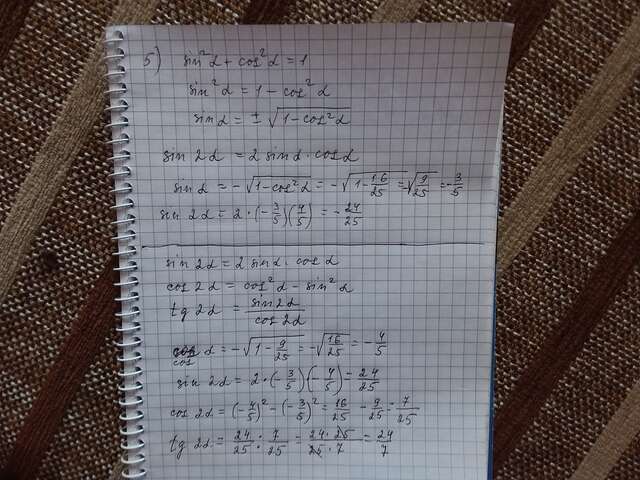 5) sin²α + cos²α = 1
sin²α = 1 - cos²α
sin α = ± √1 - cos²α
sin 2α = 2 sin α · cos α
sin α = - √1 - cos²α = - √1 - 16/25 = √9/25 = - 3/5
sin 2α = 2 · (- 3/5)(4/5) = - 24/25
sin 2α = 2 sin α · cos α
cos 2α = cos²α - sin²α
tg 2α = sin 2α / cos 2α
cos α = - √1 - 9/25 = - √16/25 = - 4/5
sin 2α = 2 · (- 3/5)(- 4/5) = 24/25
cos 2α = (- 4/5)² - (- 3/5)² = 16/25 - 9/25 = 7/25
tg 2α = 24/25 : 7/25 = 24 · 25 / 25 · 7 = 24/7